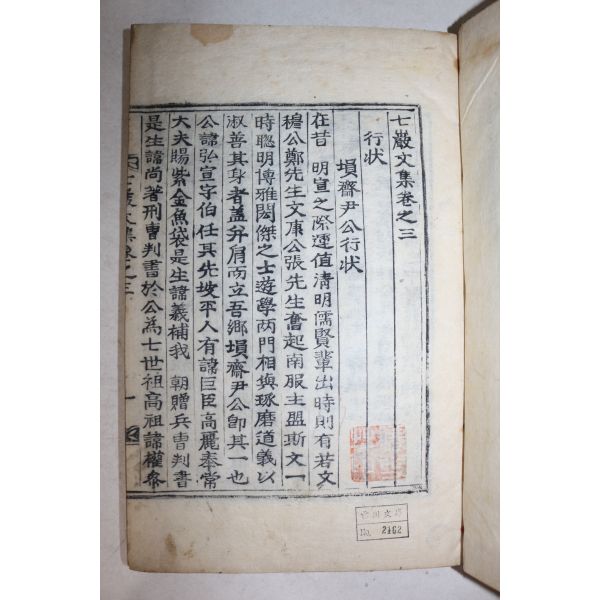 七巖文集卷之三
行状
塤齋尹公行状
在昔 明宣之際運值清明儒賢輩出時則有若文
穆公鄭先生文康公張先生奮起南服主盟斯文一
時聰明博雅閎傑之士遊學两門相與琢磨道義以
淑善其身者盖幷肩而立吾鄉塤齋尹公卽其一也
公諱弘宣字伯任其先坡平人有諱臣高麗奉常
大夫賜紫金魚袋是生諱義補我 朝贈兵曺判書
是生諱尚著刑曺判書於公為七世祖高祖諱權叅
七巖文集卷之三
一
No. 2162